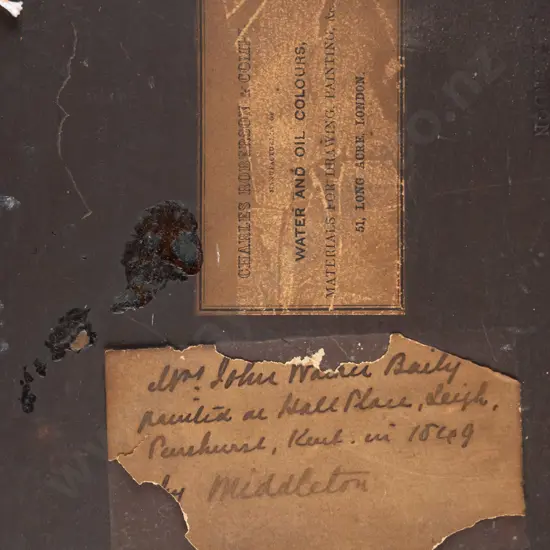 CHARLES ROBERSON & CO
MANUFACTURERS OF
WATER AND OIL COLOURS,
MATERIALS FOR DRAWING, PAINTING, &c.
51, LONG ACRE, LONDON.
Mrs John Warner Baily
painted at Hall Place, Leigh,
Penshurst, Kent. in 1849
by Middleton